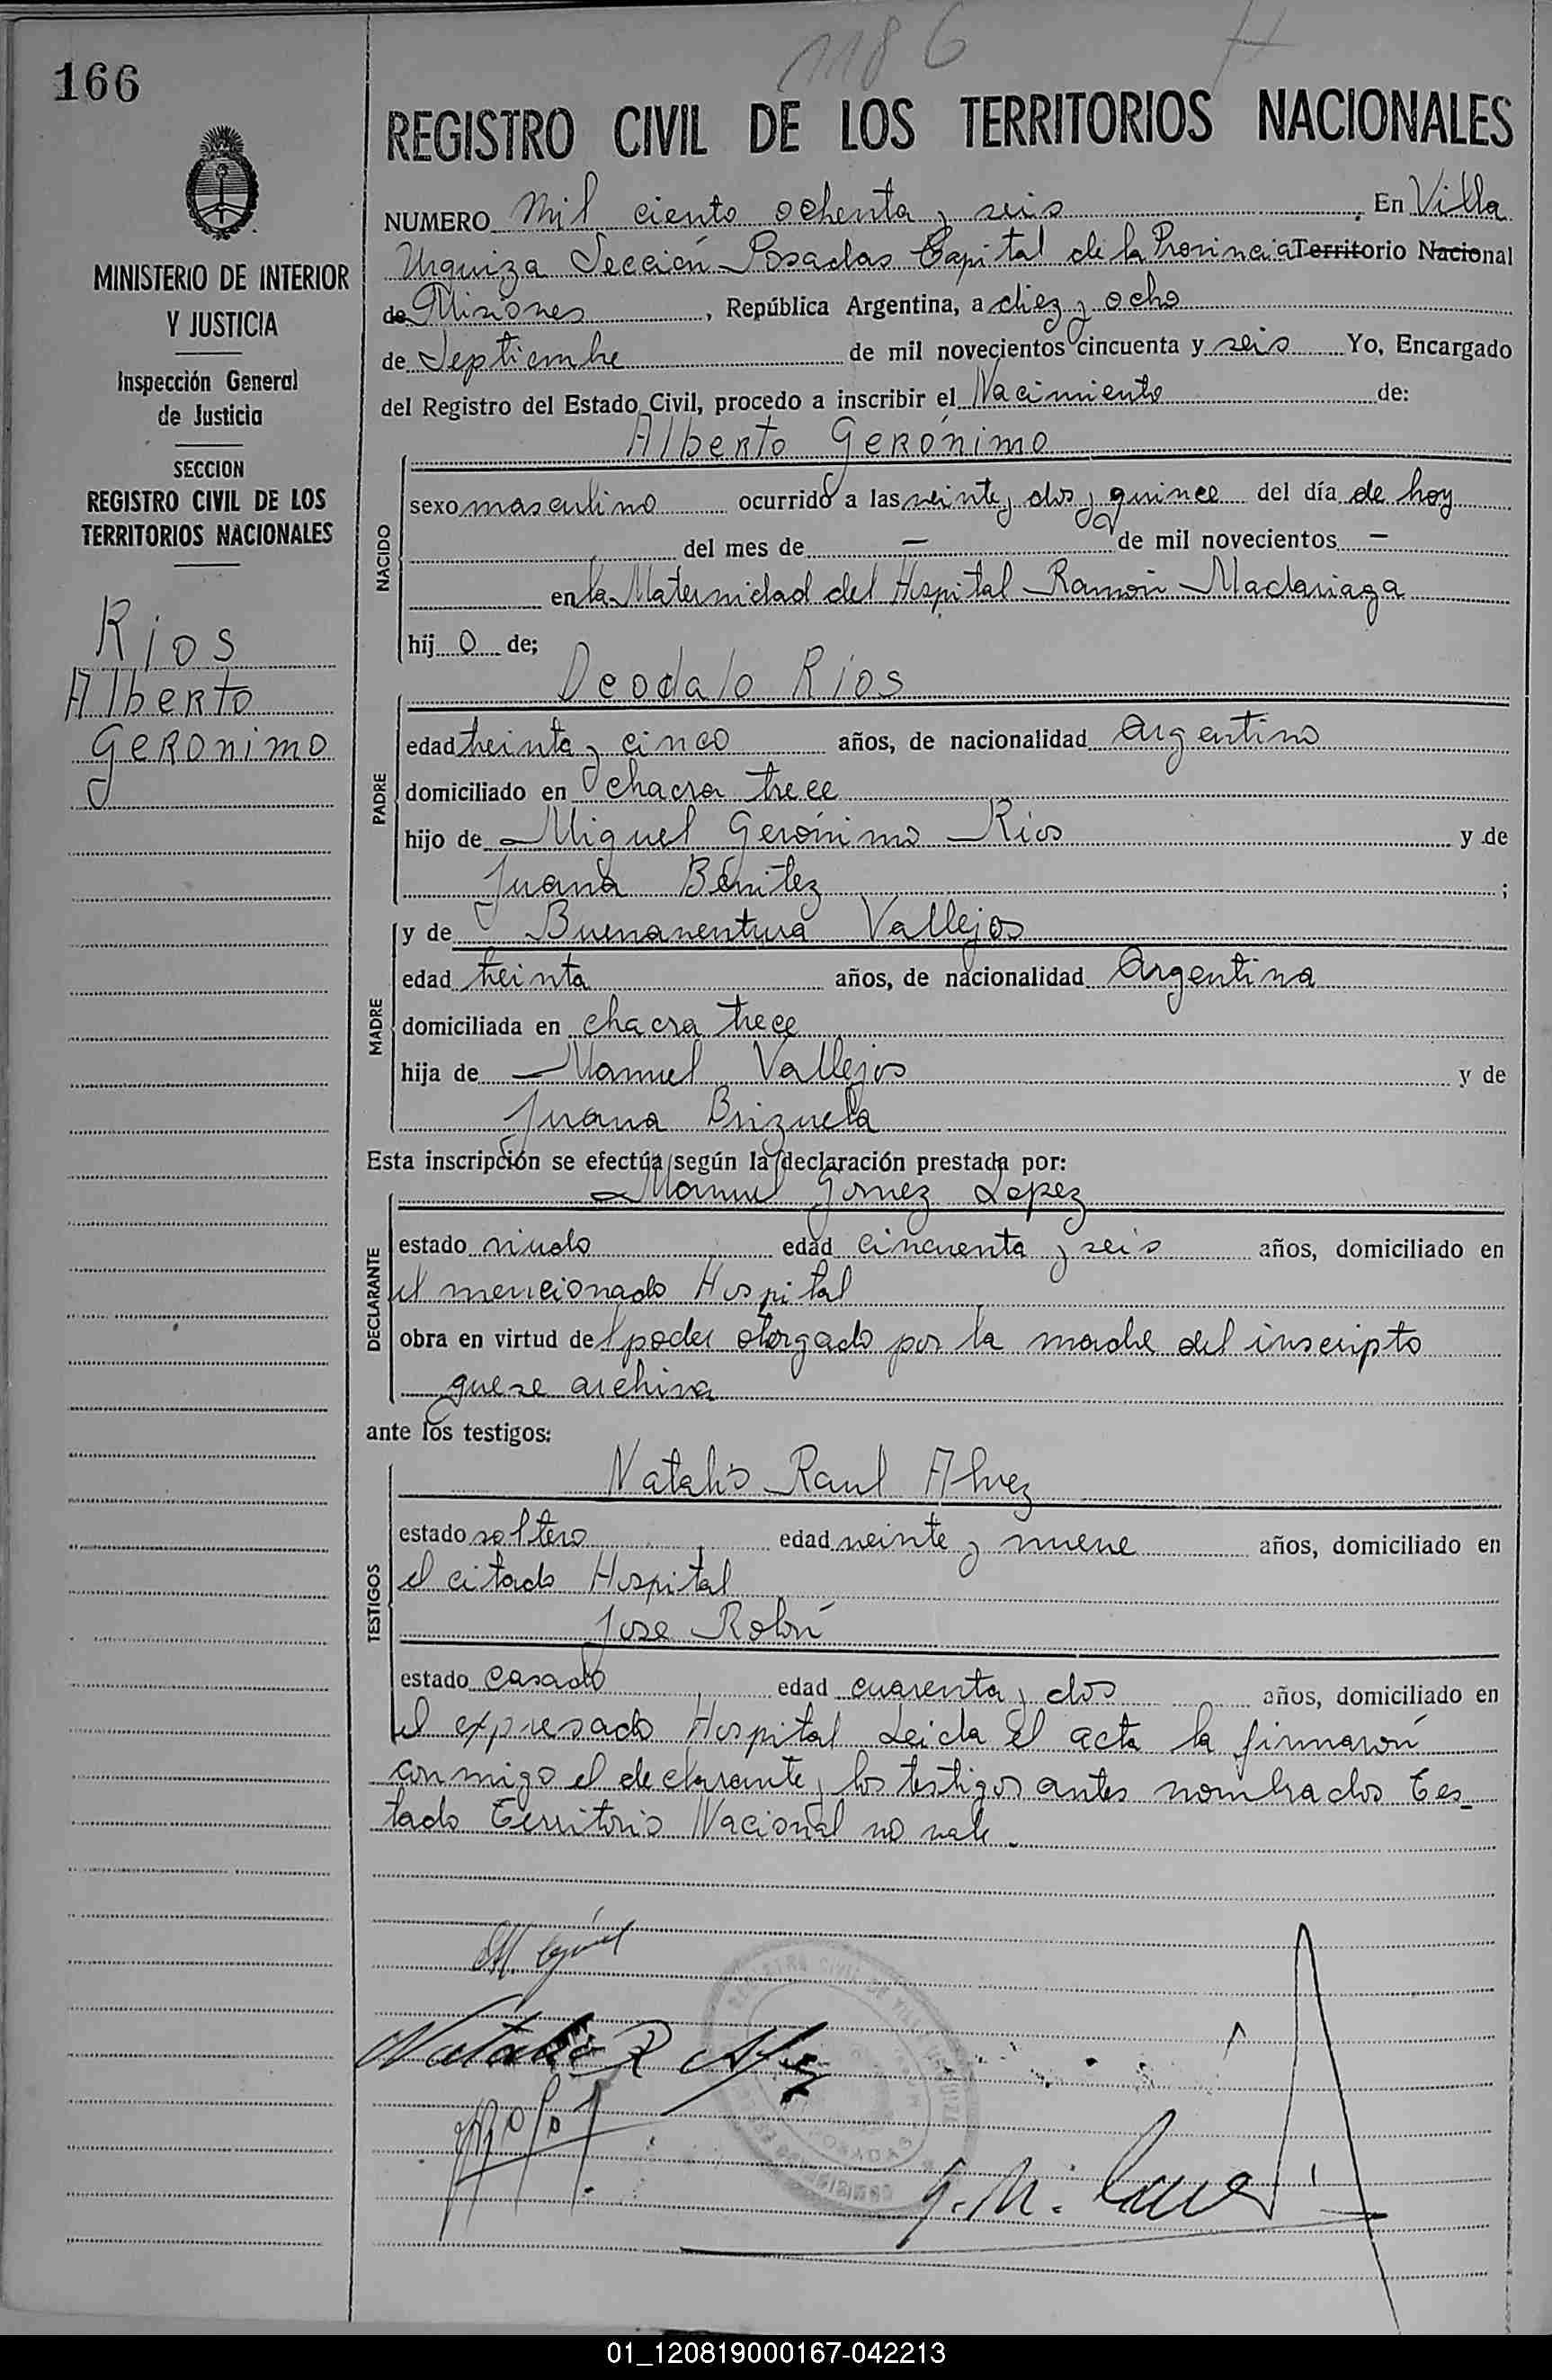 1186
166
REGISTRO CIVIL DE LOS TERRITORIOS NACIONALES
MINISTERIO DE INTERIOR
Y JUSTICIA
Inspección General
de Justicia
SECCION
REGISTRO CIVIL DE LOS
TERRITORIOS NACIONALES
Rios
Alberto
Geronimo
NUMERO Mil ciento ochenta y seis En Villa
Urquiza Sección Posadas Capital de la Provincia Territorio Nacional
de Misiones, República Argentina, a diez y ocho
de Septiembre de mil novecientos cincuenta y seis Yo, Encargado
del Registro del Estado Civil, procedo a inscribir el Nacimiento de:
Alberto Gerónimo
NACIDO
sexo masculino ocurrido a las veinte y dos y quince del día de hoy
del mes de — de mil novecientos —
en la Maternidad del Hospital Ramón Madariaga
hij o de;
Deodalo Rios
PADRE
edad treinta y cinco años, de nacionalidad Argentino
domiciliado en chacra trece
hijo de Miguel Gerónimo Rios y de
Juana Benitez ;
MADRE
y de Buenaventura Vallejos
edad treinta años, de nacionalidad Argentina
domiciliada en chacra trece
hija de Manuel Vallejos y de
Juana Brizuela
Esta inscripción se efectúa según la declaración prestada por:
Manuel Gomez Lopez
DECLARANTE
estado viudo edad cincuenta y seis años, domiciliado en
el mencionado Hospital
obra en virtud del poder otorgado por la madre del inscripto
que se archiva
ante los testigos:
Natalio Raul Alvez
TESTIGOS
estado soltero edad veinte y nueve años, domiciliado en
el citado Hospital
Jose Rolón
estado casado edad cuarenta y dos años, domiciliado en
el expresado Hospital Leida el acta la firmarón
conmigo el declarante y los testigos antes nombrados Tes-
tado Territorio Nacional no vale.
Natalio R Alvez
POSADAS
01_120819000167-042213